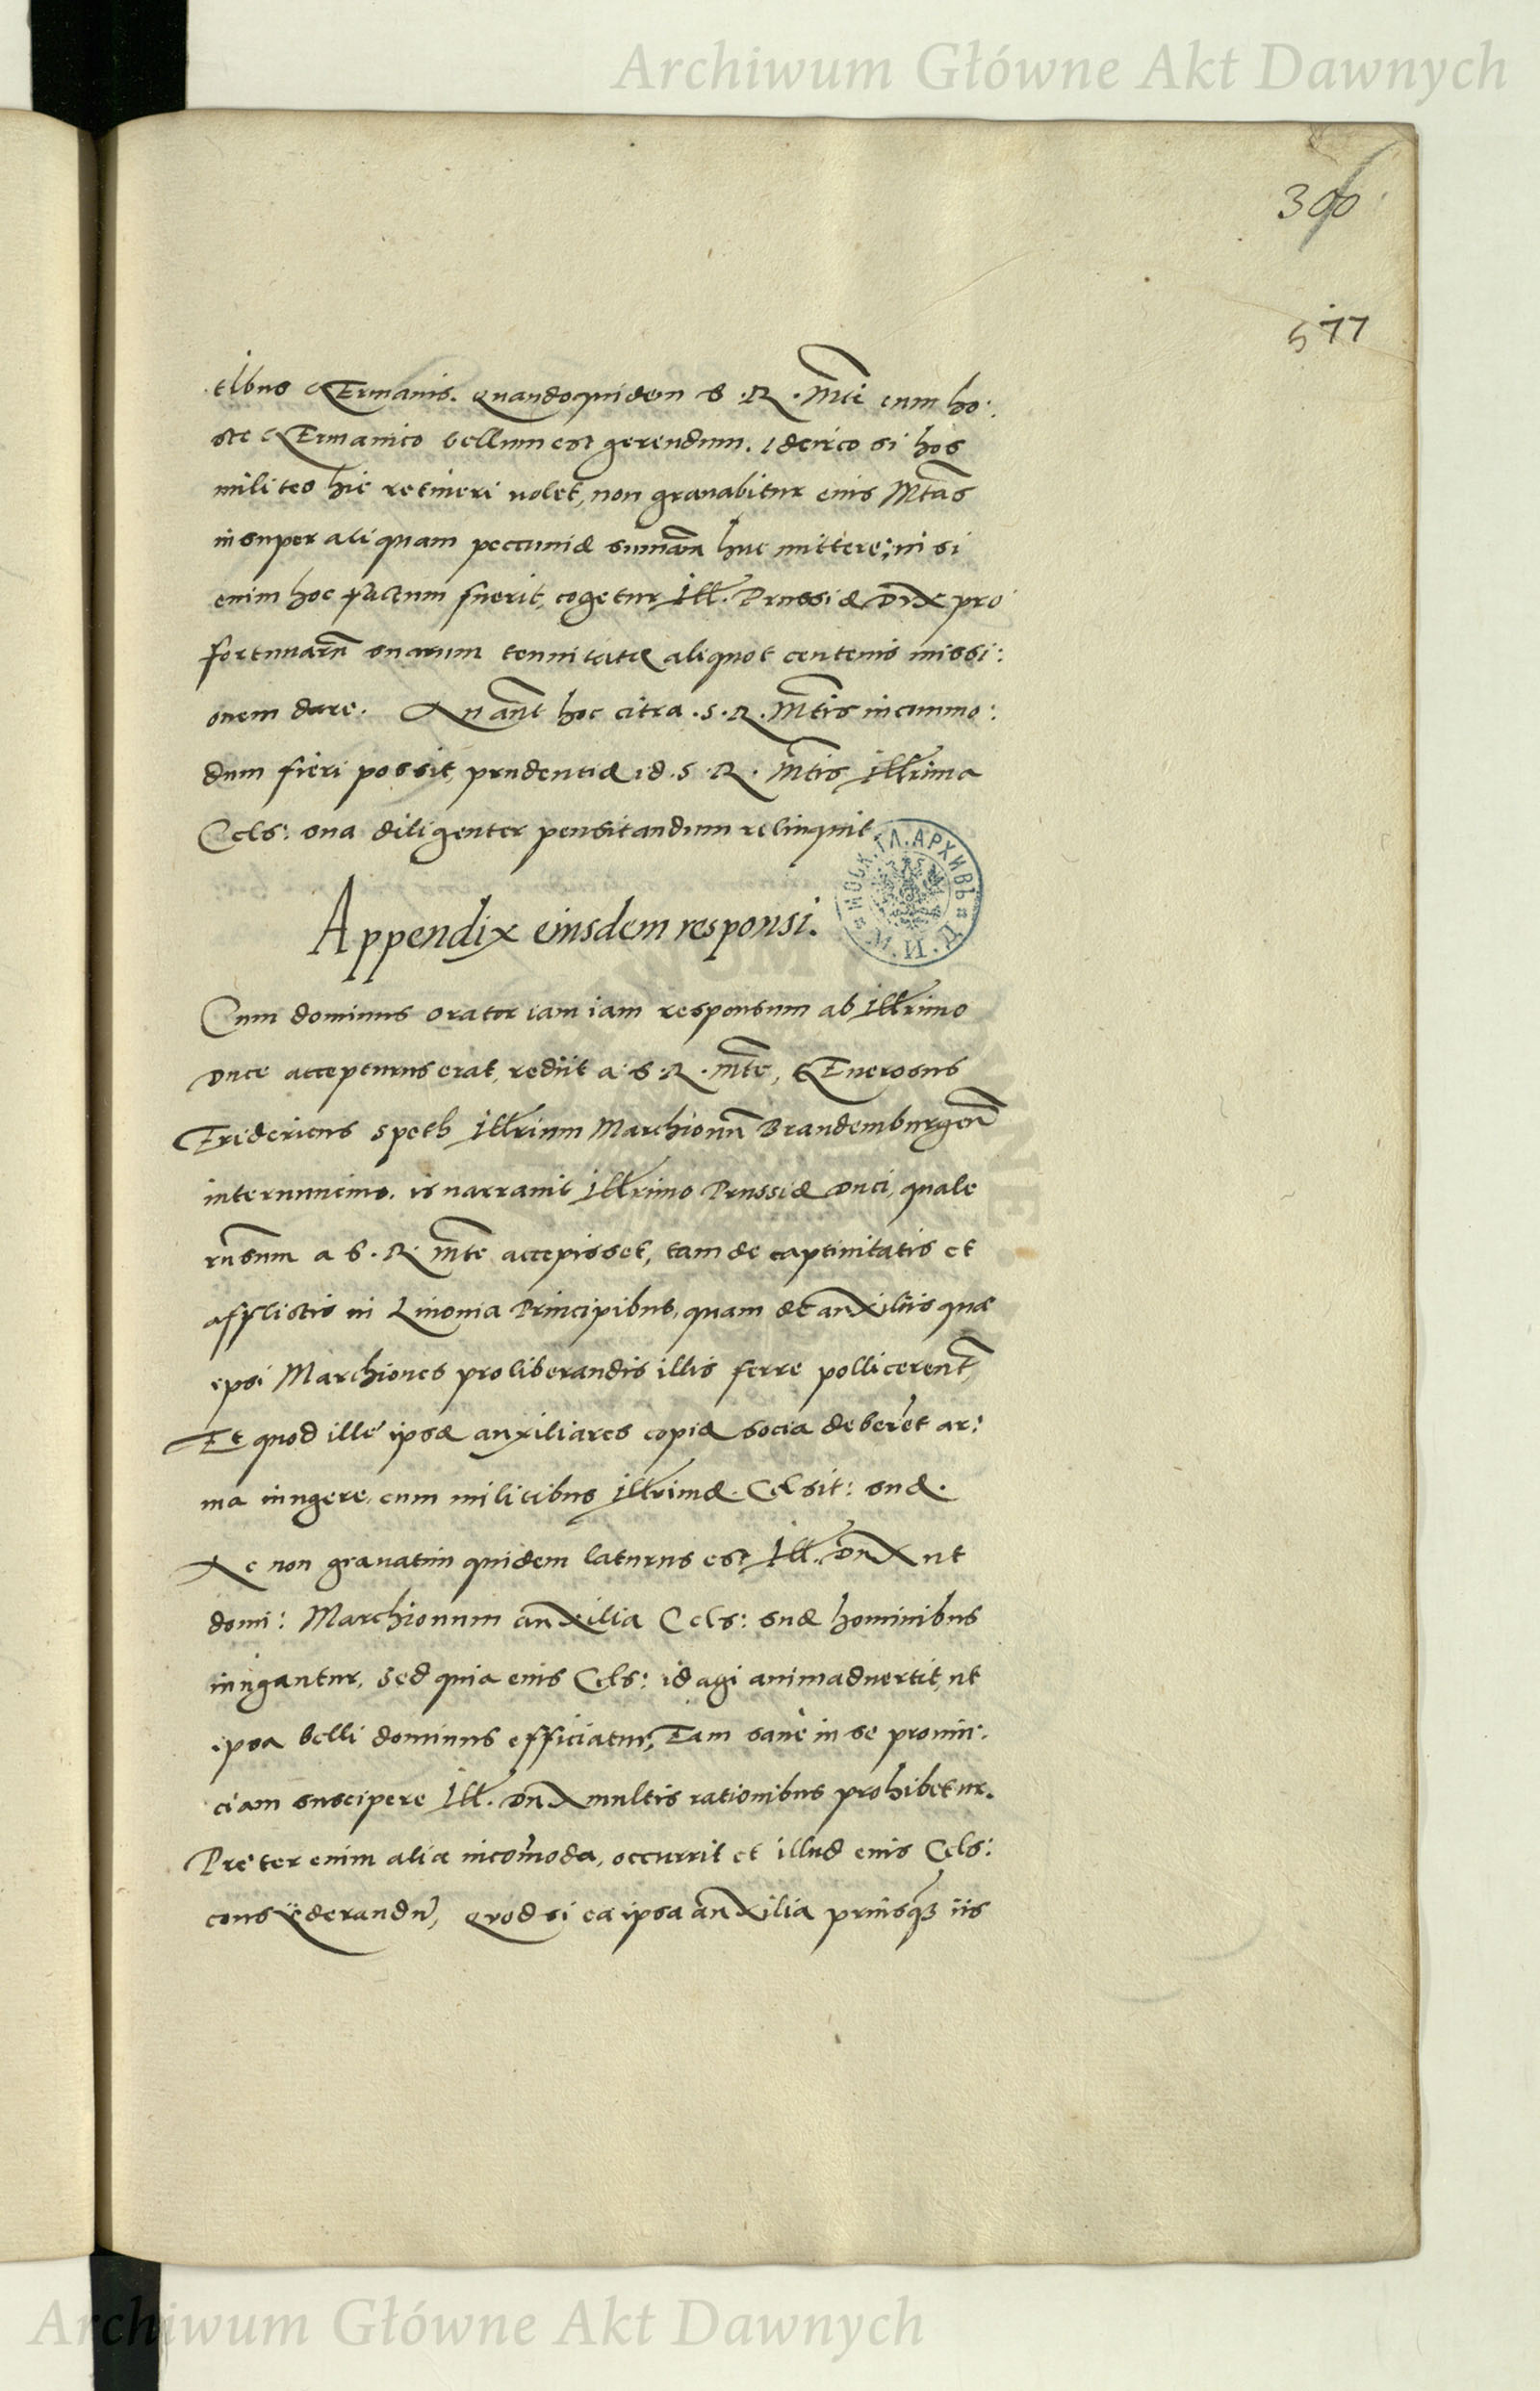 Archiwum Główne Akt Dawnych
300
577
tibus GErmanis. Quandoquidem S. R. Mti cum ho:
ste GErmanico bellum est gerendum. Idcirco si hos
milites hic retineri volet, non gravabitur eius Mtas
insuper aliquam peccuniæ sumam huc mittere; ni si
enim hoc factum fuerit, cogetur Ill. Prussiæ Dux pro
fortunarū suarum tenuitate aliquot centenis missi:
onem dare. An aūt hoc citra .S. R. Mtis incommo:
dum fieri possit, prudentiæ id .S. R. Mtis Illrima
Cels: sua diligenter pensitandum relinquit.
Appendix eiusdem responsi.
Cum dominus orator iam iam responsum ab Illrimo
Duce accepturus erat, rediit a S. R. Mte, GEnerosus
Fridericus Speth Illrium Marchionū Brandemburgen
internuncius. is narravit Illrimo Prussiæ Duci, quale
rūsum a S. R. Mte accepisset, tam de captivitatis et
afflictis in Livonia Principibus, quam de auxiliis quæ
ipsi Marchiones pro liberandis illis ferre pollicerent,
Et quod ille ipsæ auxiliares copiæ socia deberēt ar:
ma iungere, cum militibus Illrimæ. Celsit: suæ.
Ac non gravatim quidem laturus est Ill. Dux ut
domi: Marchionum auxilia Cels: suæ hominibus
iungantur, Sed quia eius Cels: id agi animadvertit, ut
ipsa belli dominus efficiatur, Eam sanè in se provin:
ciam suscipere Ill. Dux multis rationibus prohibetur.
Preter enim alia incomoda, occurrit et illud eius Cels:
consyderandū, Quod si ea ipsa auxilia priusq3 iis
МОСК. ГЛ. АРХИВЪ М. И. Д.
Archiwum Główne Akt Dawnych